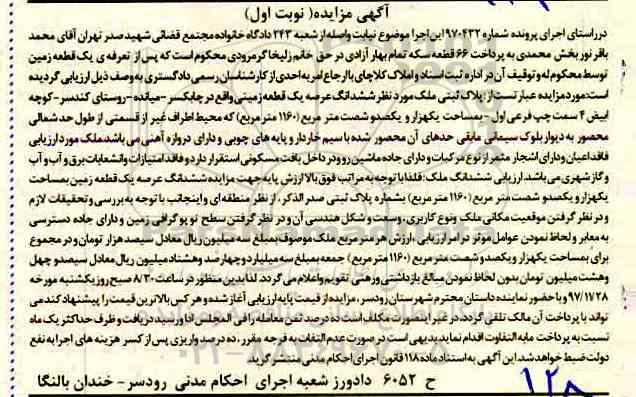 آگهی مزایده( نوبت اول)
درراستای اجرای پرونده شماره ۹۷۰۴۳۲ این اجرا موضوع نیابت واصله از شعبه ۲۴۳ دادگاه خانواده مجتمع قضائی شهید صدر تهران آقای محمد
باقر نوربخش محمدی به پرداخت ۶۶ قطعه سکه تمام بهار آزادی در حق خانم زلیخا گرمرودی محکوم است که پس از تعرفه ی یک قطعه زمین
توسط محکوم له و توقیف آن در اداره ثبت اسناد و املاک کلاچای با ارجاع امر به احدی از کارشناسان رسمی دادگستری به وصف ذیل ارزیابی گردیده
است:مورد مزایده عبارتست از: پلاک ثبتی ملک مورد نظر ششدانگ عرصه یک قطعه زمینی واقع در چابکسر -میانده -روستای کندسر -کوچه
ابیض ۴ سمت چپ فرعی اول -بمساحت یکهزار و یکصدو شصت متر مربع (۱۱۶۰ متر مربع) که محیط اطراف غیر از قسمتی از طول حد شمالی
محصور به دیوار بلوک سیمانی مابقی حدهای آن محصور شده با سیم خاردار و پایه های چوبی و دارای دروازه آهنی می باشد.ملک مورد ارزیابی
فاقد اعیان ودارای اشجار مثمر از نوع مرکبات و دارای جاده ماشین رو ودر داخل بافت مسکونی استقرار دارد و فاقد امتیازات وانشعابات برق و آب و آب
و گاز شهری می باشد. ارزیابی ششدانگ ملک: فلذا با توجه به مراتب فوق بالا ارزش پایه جهت مزایده ششدانگ عرصه یک قطعه زمین بمساحت
یکهزار و یکصدو شصت متر مربع (۱۱۶۰ متر مربع) بشماره پلاک ثبتی صدر الذکر، از نظر منطقه ای و اینجانب با توجه به بررسی و تحقیقات لازم
و در نظر گرفتن موقعیت مکانی ملک ونوع کاربری ،وسعت و شکل هندسی آن و در نظر گرفتن سطح توپوگرافی زمین و دارای جاده دسترسی
به معابر و لحاظ نمودن عوامل موثر در امر ارزیابی ،ارزش هر متر مربع ملک موصوف بمبلغ سه میلیون ریال معادل سیصد هزار تومان و در مجموع
برای بمساحت یکهزار و یکصد و شصت متر مربع (۱۱۶۰ متر مربع) جمعه بمبلغ سه میلیارد و چهارصد وهشتاد میلیون ریال معادل سیصدو چهل
وهشت میلیون تومان بدون لحاظ نمودن مبالغ بازداشتی ورهنی تقویم واعلام می گردد. لذا بدین منظور در ساعت ۸/۳۰ صبح روز یکشنبه مورخه
۹۷/۱۱/۲۸ و با حضور نماینده دادستان محترم شهرستان رودسر، مزایده از قیمت پایه ارزیابی آغاز شده و هر کس بالاترین قیمت را پیشنهاد کند می
تواند با پرداخت آن مالک تلقی گردد، در غیر اینصورت مکلف است ده درصد ثمن معامله را فی المجلس ادا و رسید دریافت و ظرف حداکثر یک ماه
نسبت به پرداخت مابه التفاوت اقدام نماید بدیهی است در صورت عدم التفات به فرجه مقرر ، ده درصد واریزی پس از کسر هزینه های اجرا به نفع
دولت ضبط خواهد شد. این آگهی به استناد ماده ۱۱۸ قانون اجرای احکام مدنی منتشر گردید.
ح ۶۰۵۲ دادورز شعبه اجرای احکام مدنی رودسر- خندان بالنگا
۱۲۸